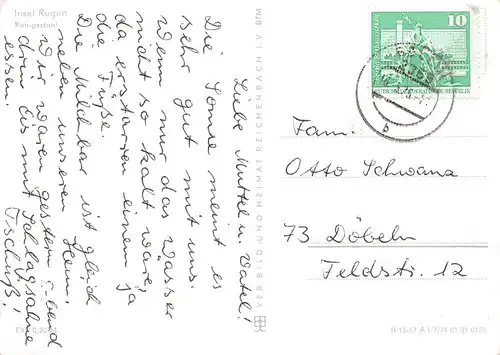 Insel Rügen
Königsstuhl
Liebe Muttel u. Vatel!
Die Sonne meint es
sehr gut mit uns.
Wenn nur das Wasser
nicht so kalt wäre,
da erstarren einem ja
die Füße.
Die Milchbar ist gleich
neben unserem Heim,
wir waren gestern abend
drin Eis mit Schlagsahne
essen.
Tschüß!
VEB BILD UND HEIMAT REICHENBACH I. V. BTM
10
DEUTSCHE DEMOKRATISCHE REPUBLIK
b
Fam.
Otto Schwanz
73 Döbeln
Feldstr. 12